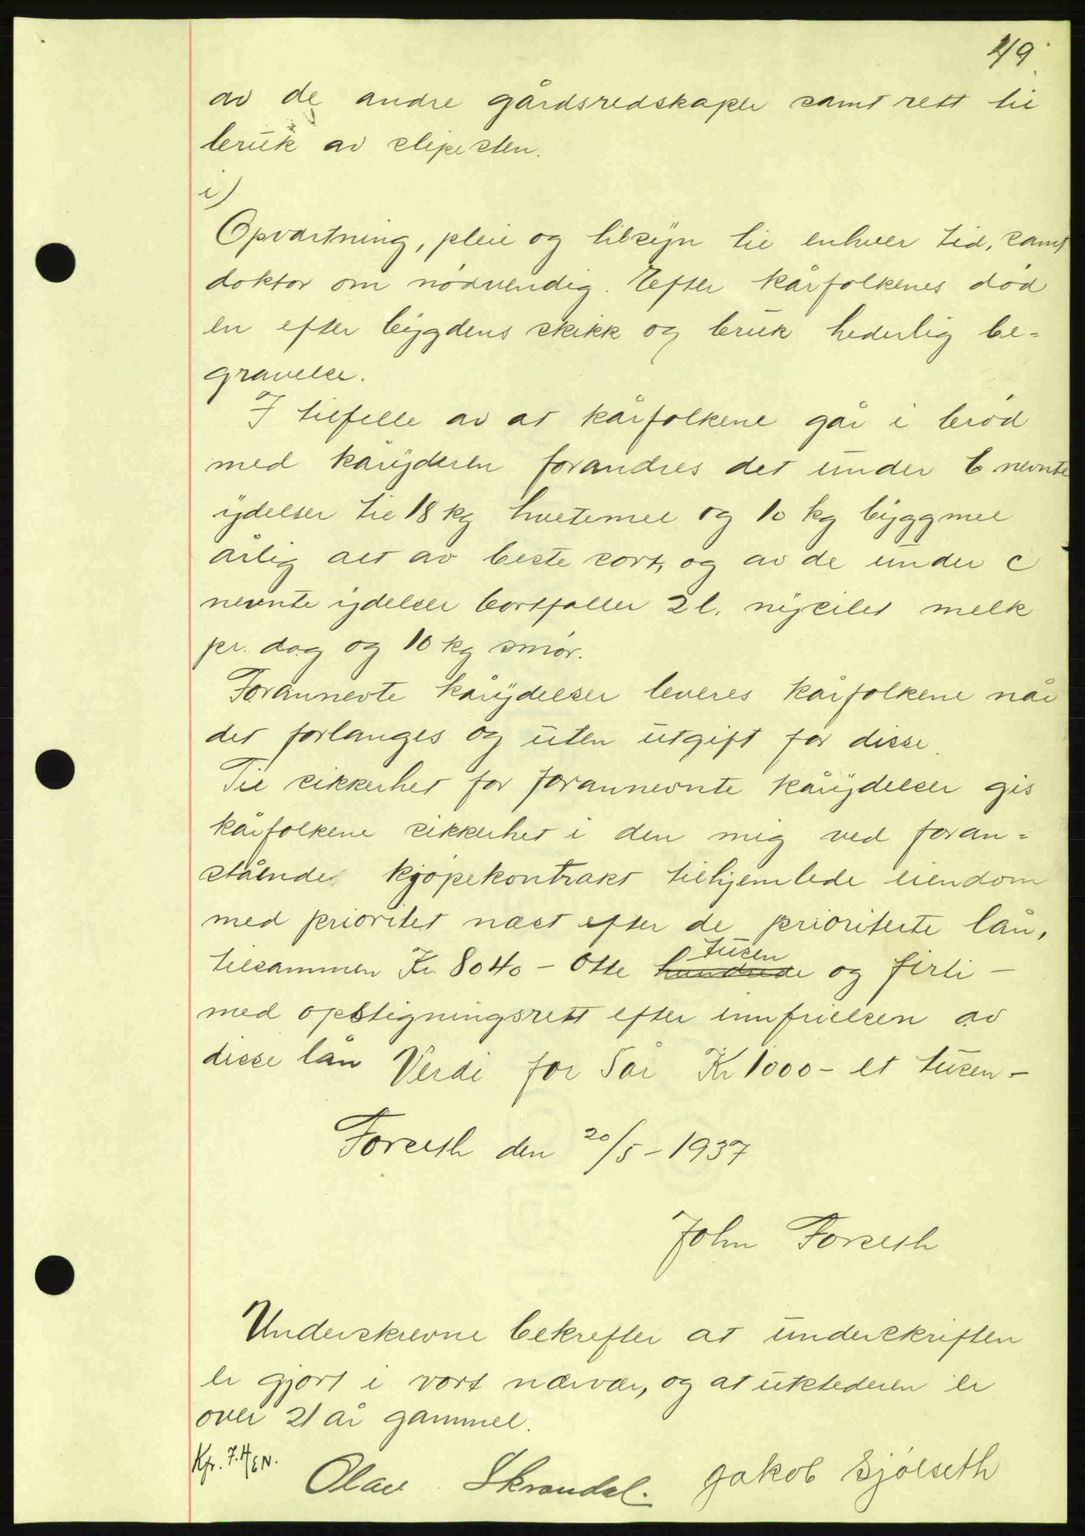 49
av de andre gårdsredskaper samt rett til
bruk av slipesten.
i)
Opvartning, pleie og tilsyn til enhver tid, samt
doktor om nødvendig. Efter kårfolkenes død
en efter bygdens skikk og bruk hederlig be=
gravelse.
I tilfelle av at kårfolkene går i brød
med kåryderen forandres det under b nevnte
ydelser til 18 kg hvetemel og 10 kg byggmel
årlig alt av beste sort, og av de under c
nevnte ydelser bortfaller 2 l. nysilet melk
pr. dag og 10 kg smør.
Forannevte kårydelser leveres kårfolkene når
det forlanges og uten utgift for disse.
Til sikkerhet for forannevnte kårydelser gis
kårfolkene sikkerhet i den mig ved foran=
stående kjøpekontrakt tilhjemlede eiendom
med prioritet næst efter de prioriterte lån,
tusen
tilsammen Kr. 8040 – Otte hundrede og førti –
med opstigningsrett efter innfrielsen av
disse lån Verdi for 5 år Kr 1000 – et tusen –
Forseth den 20/5 – 1937
John Forseth
Underskrevne bekrefter at underskriften
er gjort i vort nærvær, og at utstederen er
over 21 år gammel.
Kfr. 7.H/EN.
Olav Skrondal. Jakob Sjølseth